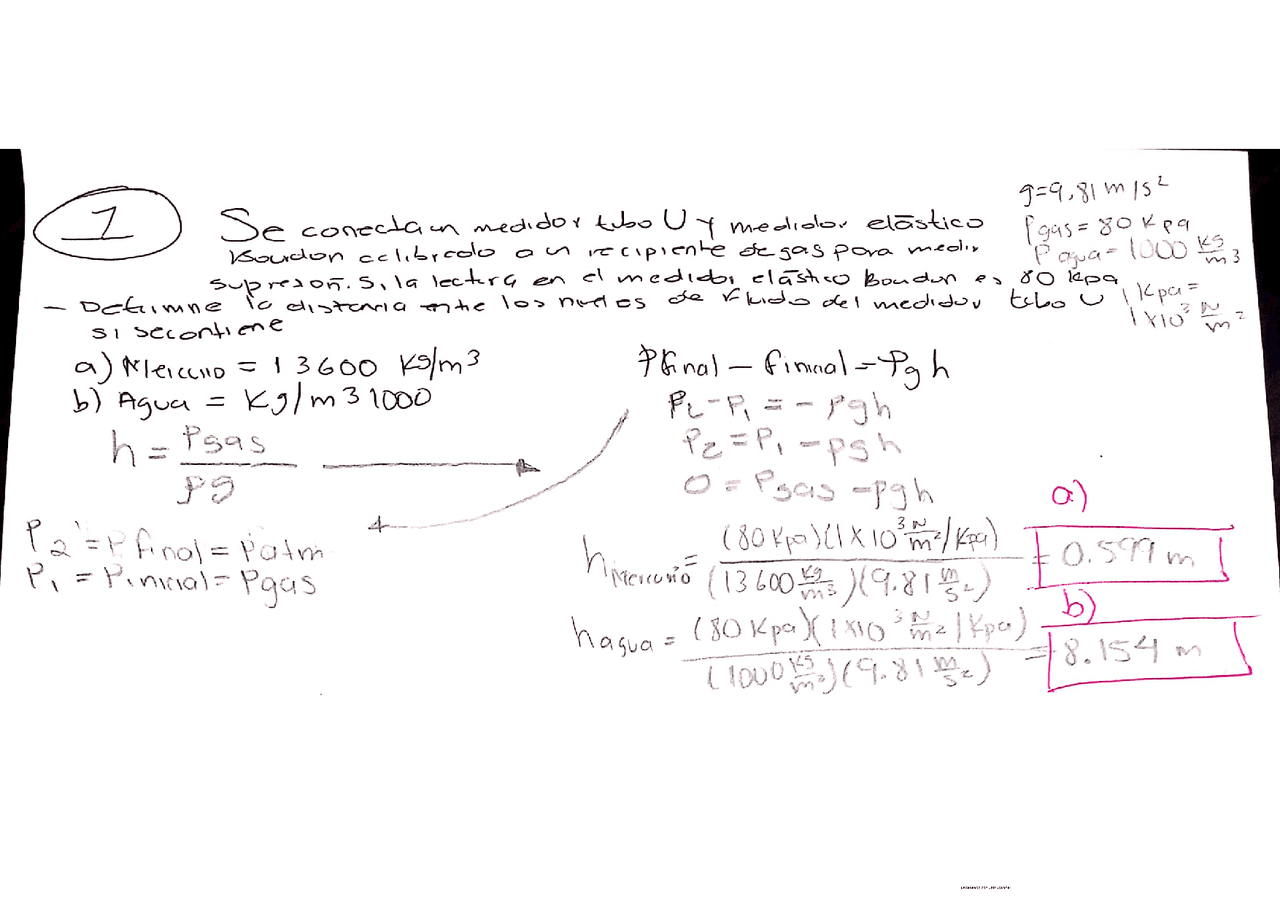 1
Se conecta un medidor tubo U y medidor elástico
Bourdon calibrado a un recipiente de gas para medir
supresoñ. Si la lectura en el medidor elástico Bourdon es 80 Kpa
- Determine la distancia entre los niveles de fluido del medidor tubo U
si se contiene
g=9,81 m/s²
Pgas = 80 Kpa
ρ agua = 1000 Kg/m3
1 Kpa =
1x10³ N/m²
a) Mercurio = 13600 Kg/m3
b) Agua = Kg/m3 1000
h = Pgas/ρg
P2 = P final = Patm
P1 = P.inicial = Pgas
Pfinal - finicial = ρgh
P2 - P1 = - ρgh
P2 = P1 - ρgh
0 = Pgas - ρgh
h Mercurio = (80 Kpa)(1x10³ N/m²/Kpa) / (13600 Kg/m3)(9.81 m/s²) = 0.599 m
a)
h agua = (80 Kpa)(1x10³ N/m²/Kpa) / (1000 Kg/m²)(9.81 m/s²) = 8.154 m
b)